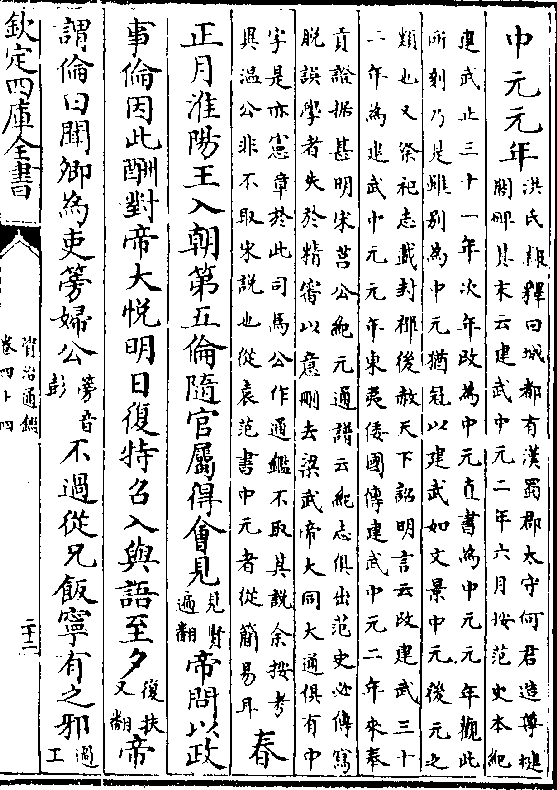 中元元年洪氏隸釋曰城都有漢蜀郡太守何君造尊楗
閣碑其末云建武中元二年六月按范史本紀
建武止三十一年次年改為中元直書為中元元年觀此
所刻乃是雖别為中元猶冠以建武如文景中元後元之
類也又祭祀志載封禪後赦天下詔明言云改建武三十
二年為建武中元元年東夷倭國傳建武中元二年來奉
貢證据甚明宋莒公紀元通譜云紀志俱出范史必傳寫
脱誤學者失於精審以意刪去梁武帝大同大通俱有中
字是亦憲章於此司馬公作通鑑不取其說余按考
異温公非不取宋說也從袁范書中元者從簡易耳
春
正月淮陽王入朝第五倫隨官屬得會見見賢
遍翻帝問以政
事倫因此酬對帝大悦明日復特召入與語至夕復扶
又翻帝
謂倫曰聞卿為吏篣婦公篣音
彭不過從兄飯寧有之邪過
工
欽定四庫全書
資治通鑑
卷四十四
二十二